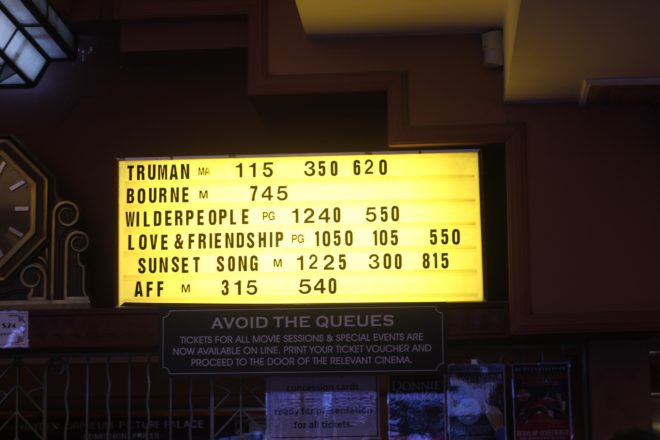 TRUMAN MA 115 350 620
BOURNE M 745
WILDERPEOPLE PG 1240 550
LOVE & FRIENDSHIP PG 1050 105 550
SUNSET SONG M 1225 300 815
AFF M 315 540
AVOID THE QUEUES
TICKETS FOR ALL MOVIE SESSIONS & SPECIAL EVENTS ARE
NOW AVAILABLE ON LINE. PRINT YOUR TICKET VOUCHER AND
PROCEED TO THE DOOR OF THE RELEVANT CINEMA.
concession cards
ready for presentation
for all tickets.
DONNIE
DARKO
ORPHEUM PICTURE PALACE